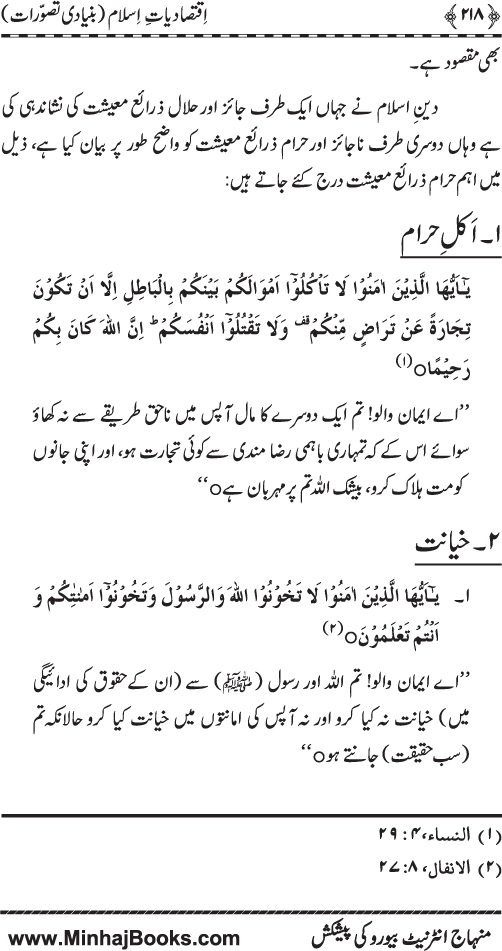 ﴿۲۱۸﴾ اِقتصادیاتِ اِسلام (بنیادی تصوّرات)
بھی مقصود ہے۔
دینِ اسلام نے جہاں ایک طرف جائز اور حلال ذرائع معیشت کی نشاندہی کی
ہے وہاں دوسری طرف ناجائز اور حرام ذرائع معیشت کو واضح طور پر بیان کیا ہے، ذیل
میں اہم حرام ذرائع معیشت درج کئے جاتے ہیں:
۱۔ اَکلِ حرام
يٰۤاَيُّهَا الَّذِيْنَ اٰمَنُوْا لَا تَاْكُلُوْۤا اَمْوَالَكُمْ بَيْنَكُمْ بِالْبَاطِلِ اِلَّاۤ اَنْ تَكُوْنَ
تِجَارَةً عَنْ تَرَاضٍ مِّنْكُمْ ۫ وَلَا تَقْتُلُوْۤا اَنْفُسَكُمْ ؕ اِنَّ اللهَ كَانَ بِكُمْ
رَحِيْمًا○(۱)
’’اے ایمان والو! تم ایک دوسرے کا مال آپس میں ناحق طریقے سے نہ کھاؤ
سوائے اس کے کہ تمہاری باہمی رضا مندی سے کوئی تجارت ہو، اور اپنی جانوں
کو مت ہلاک کرو، بیشک اللہ تم پر مہربان ہے○‘‘
۲۔ خیانت
۱۔ يٰۤاَيُّهَا الَّذِيْنَ اٰمَنُوْا لَا تَخُوْنُوا اللهَ وَالرَّسُوْلَ وَتَخُوْنُوْۤا اَمٰنٰتِكُمْ وَ
اَنْتُمْ تَعْلَمُوْنَ○(۲)
’’اے ایمان والو! تم اللہ اور رسول (ﷺ) سے (ان کے حقوق کی ادائیگی
میں) خیانت نہ کیا کرو اور نہ آپس کی امانتوں میں خیانت کیا کرو حالانکہ تم
(سب حقیقت) جانتے ہو○‘‘
(۱) النساء، ۴: ۲۹
(۲) الانفال، ۸: ۲۷
منہاج انٹرنیٹ بیورو کی پیشکش www.MinhajBooks.com